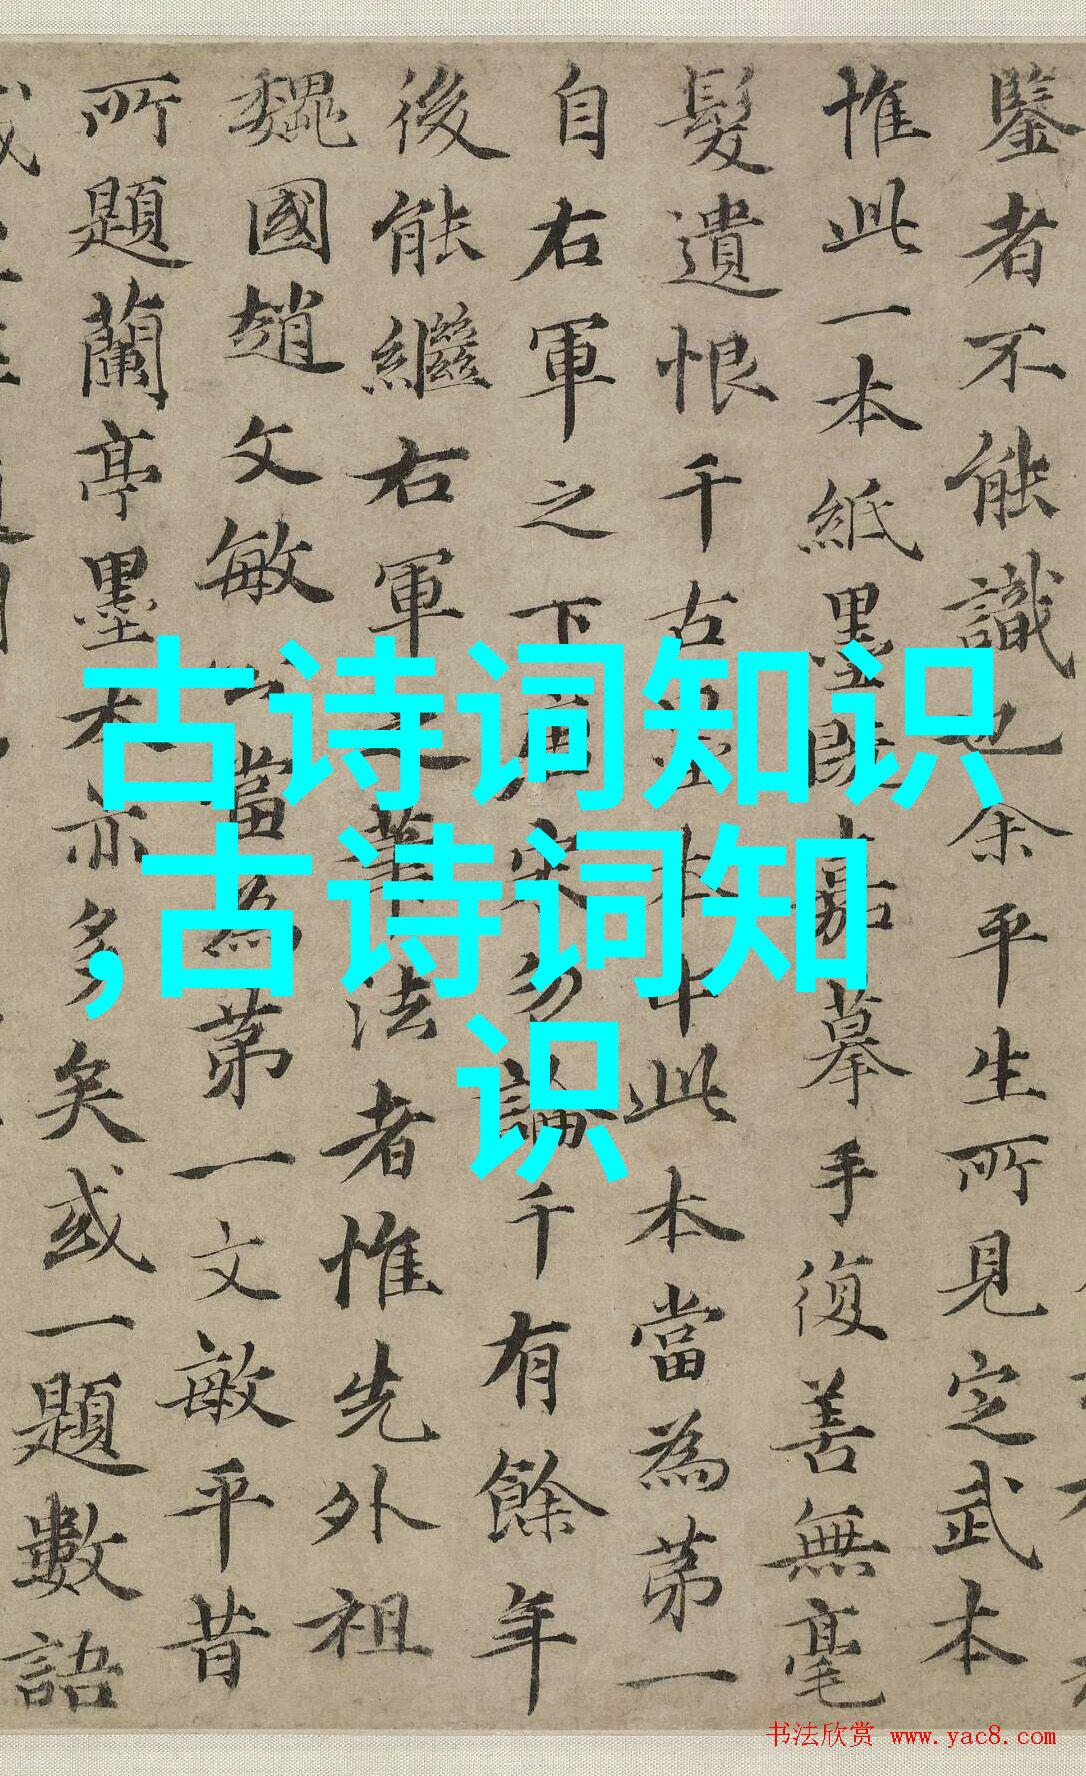 鑒者不能識也余平生所見定武本
惟此一本紙墨既嘉摹手復善無毫
髮遺恨千古墨本中此本當為苐一
自右軍之下唐宋勿論千有餘年
後能繼右軍之筆法者惟先外祖
魏國趙文敏公當為苐一文敏平昔
所題蘭亭墨本亦多矣或一題數語
古诗词知识
,古诗词知
识
书法欣赏 www.yac8.com